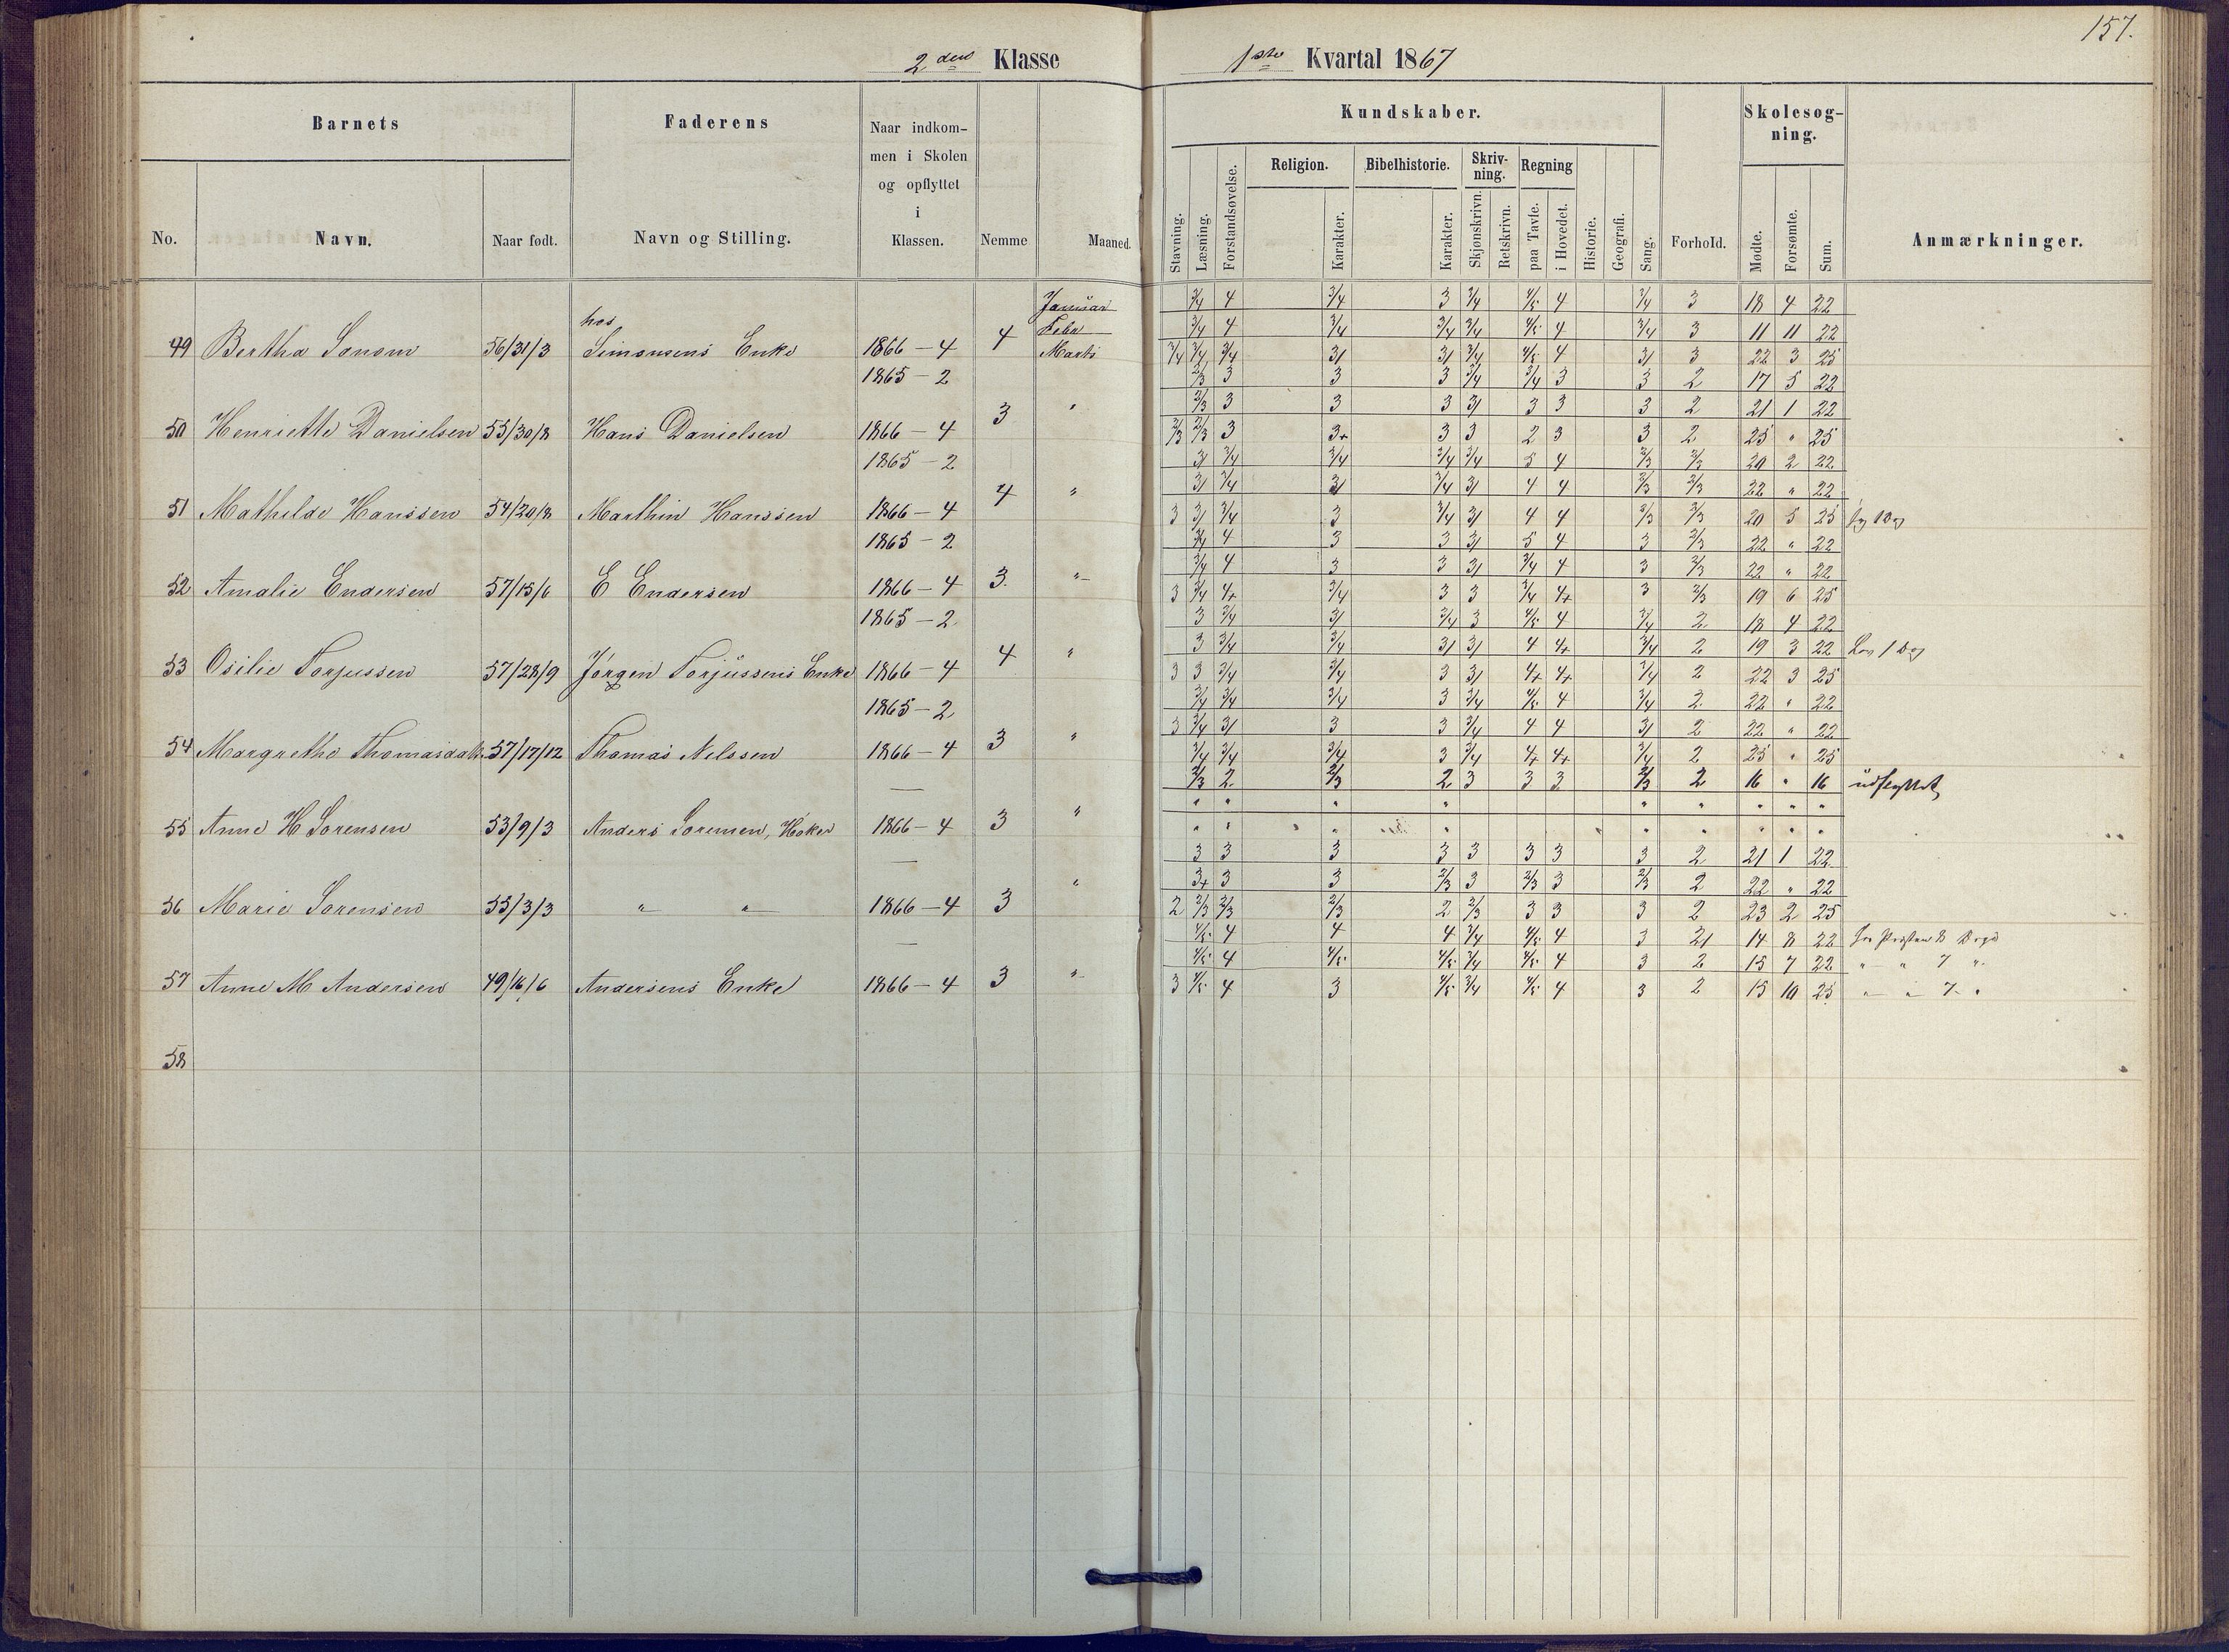 157.
2den Klasse
1ste Kvartal 1867
Barnets
Faderens
Naar indkommen i Skolen og opflyttet i Klassen.
Nemme
Maaned.
No.
Navn.
Naar født.
Navn og Stilling.
Kundskaber.
Stavning.
Læsning.
Forstandsøvelse.
Religion.
Karakter.
Bibelhistorie.
Karakter.
Skrivning.
Skjønskrivn.
Retskrivn.
Regning
paa Tavle.
i Hovedet.
Historie.
Geografi.
Sang.
Forhold.
Skolesøgning.
Mødte.
Forsømte.
Sum.
Anmærkninger.
Januar 3/4 4 3/4 3 3/4 4/5 4 3/4 3 18 4 22
hos Febr 3/4 4 3/4 3/4 3/4 4/5 4 3/4 3 11 11 22
49 Bertha 56/31/3 Simonsens Enke 1866 - 4 4 Marts 3/4 3/4 3/4 3/ 3/ 3/4 4/5 4 3/ 3 22 3 25
1865 - 2 2/3 3 3 3 3/4 3/4 3 3 2 17 5 22
2/3 3 3 3 3/ 3 3 3 2 21 1 22
50 Henriette Danielsen 55/30/8 Hans Danielsen 1866 - 4 3 " 2/3 2/3 3 3+ 3 3 2 3 3 2 25 " 25
1865 - 2 3/ 3/4 3/4 3/4 3/4 5 4 2/3 2/3 20 2 22
3/ 3/4 3/ 3/4 3/ 4 4 2/3 2/3 22 " 22
51 Mathilde Hanssen 54/20/8 Marthin Hanssen 1866 - 4 4 " 3 3/ 3/4 3 3/4 3/ 4 4 2/3 2/3 20 5 25
1865 - 2 3/4 4 3 3 3/ 5 4 3 2/3 22 " 22
3/4 4 3 3 3/ 3/4 4 3 2/3 22 " 22
52 Amalie Endersen 57/15/6 E Endersen 1866 - 4 3. " 3 3/4 4+ 3/4 3 3 3/4 4+ 3 2/3 19 6 25
1865 - 2 3 3/4 3/ 3/4 3 4/5 4 3/4 2 18 4 22
3 3/4 3/4 3/ 3/ 4 4+ 3/4 2 19 3 22 1 Dag
53 Osilie Torjussen 57/28/9 Jørgen Torjussens Enke 1866 - 4 4 " 3 3 3/4 3/4 3 3/ 4+ 4+ 3/4 2 22 3 25
1865 - 2 3/4 3/4 3/4 3 3/4 4/5 4 3/4 2 22 " 22
3 3/4 3/ 3 3 3/4 4 4 3/ 2 22 " 22
54 Margrethe Thomasdatt. 57/17/12 Thomas Nilssen 1866 - 4 3 " 3/4 3/4 3/4 3 3/4 4+ 4+ 3/4 2 25 " 25
— 2/3 2 2/3 2 3 3 3 2/3 2 16 " 16 udflyttet
" " " " " " " " "
55 Anne H Sørensen 53/9/3 Anders Sørensen, Høker 1866 - 4 3 " " " " " " " " " "
— 3 3 3 3 3 3 3 3 2 21 1 22
3+ 3 3 2/3 3 2/3 3 2/3 2 22 " 22
56 Marie Sørensen 55/3/3 " " 1866 - 4 3 " 2 2/3 2/3 2/3 2 2/3 3 3 3 2 23 2 25
— 4/5 4 4 4 3/4 4/5 4 3 2/ 14 8 22 Præsten 8 Dage
4/5 4 4/5 4/5 3/4 4/5 4 3 2 15 7 22 " " 7 "
57 Anne M Andersen 49/16/6 Andersens Enke 1866 - 4 3 " 3 4/5 4 3 4/5 3/4 4/5 4 3 2 15 10 25 " " 7 "
58